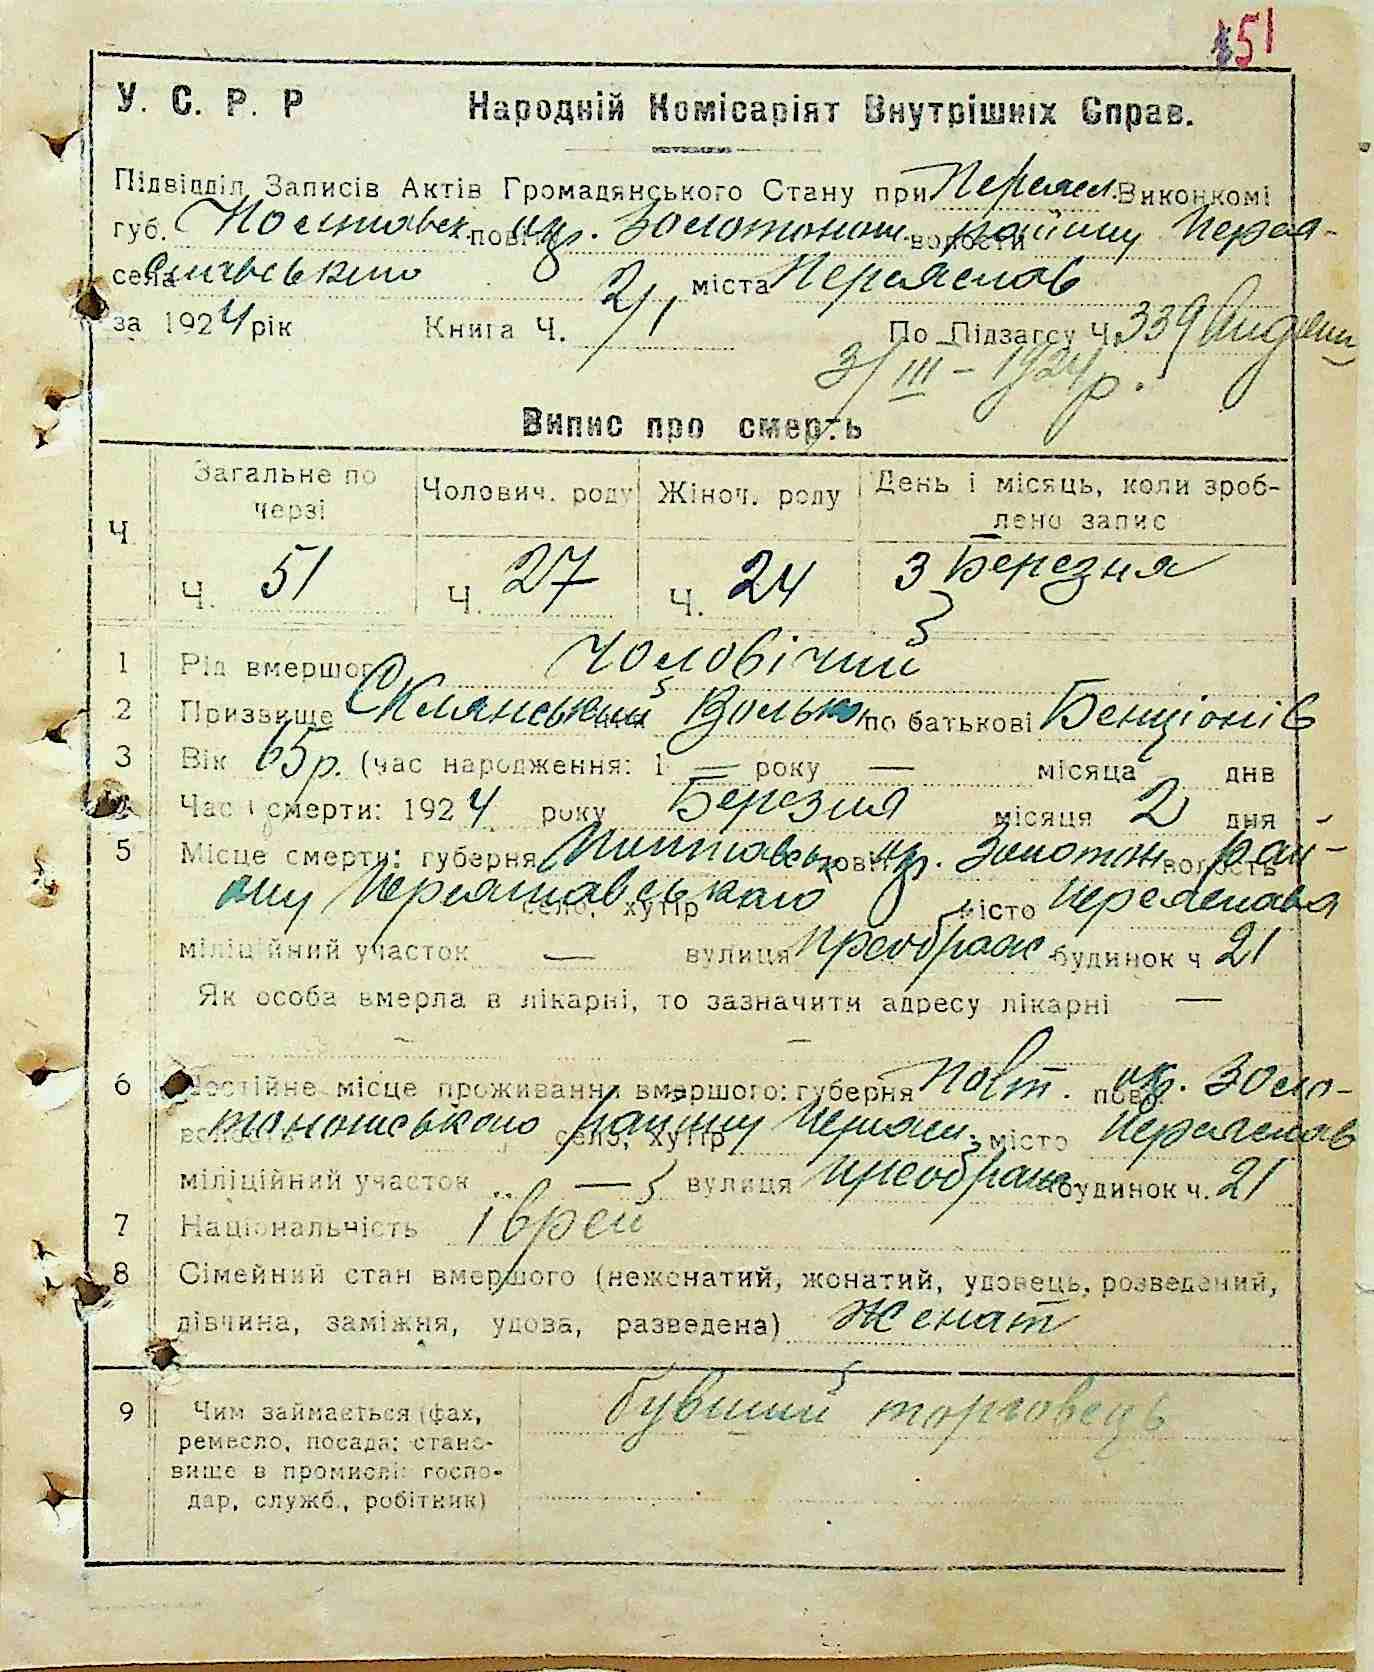 51
У. С. Р. Р Народній Комісаріят Внутрішніх Справ.
Підвідділ Записів Актів Громадянського Стану при Переясл. Виконкомі
губ. Полтавськ. повіт окр. Золотонош. волости району Перея-
села славського міста Переяслав
за 1924 рік Книга Ч. 2/1 По Підзагсу Ч. 339
3/III – 1924 р.
Випис про смерть
Ч Загальне по черзі Чолович. роду Жіноч. роду День і місяць, коли зроб-
лено запис
Ч. 51 Ч. 27 Ч. 24 3 Березня
1 Рід вмершого Чоловічий
2 Призвище Склянський Волько по батькові Бенціонів
3 Вік 65 р. (час народження: 1 — року — місяца днв
Час смерти: 1924 року Березня місяця 2 дня
5 Місце смерти: губерня Полтавськ повіт окр. Золотон волость рай-
ону Переяславського село, хутір місто Переяслав
міліційний участок — вулиця Преображ будинок ч 21
Як особа вмерла в лікарні, то зазначити адресу лікарні —
6 Постійне місце проживання вмершого: губерня Полт. пові окр. Золо-
тоноського району Переясл. село, хутір місто Переяслав
міліційний участок — вулиця Преображ будинок ч. 21
7 Національність Іврей
8 Сімейний стан вмершого (неженатий, жонатий, удовець, розведений,
дівчина, заміжня, удова, разведена) Женат
9 Чим займається (фах, бувший торговець
ремесло, посада; стано-
вище в промислі: госпо-
дар, служб., робітник)